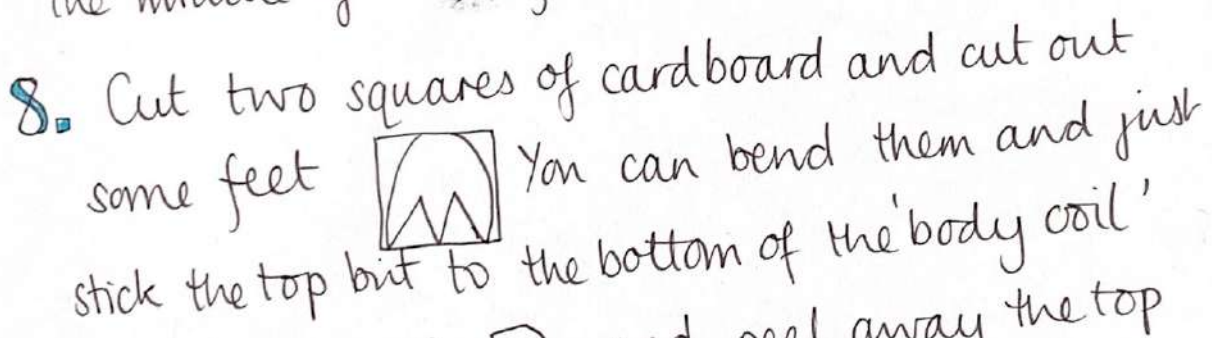 the
8. Cut two squares of cardboard and cut out
some feet You can bend them and just
stick the top bit to the bottom of the 'body coil'
peel away the top